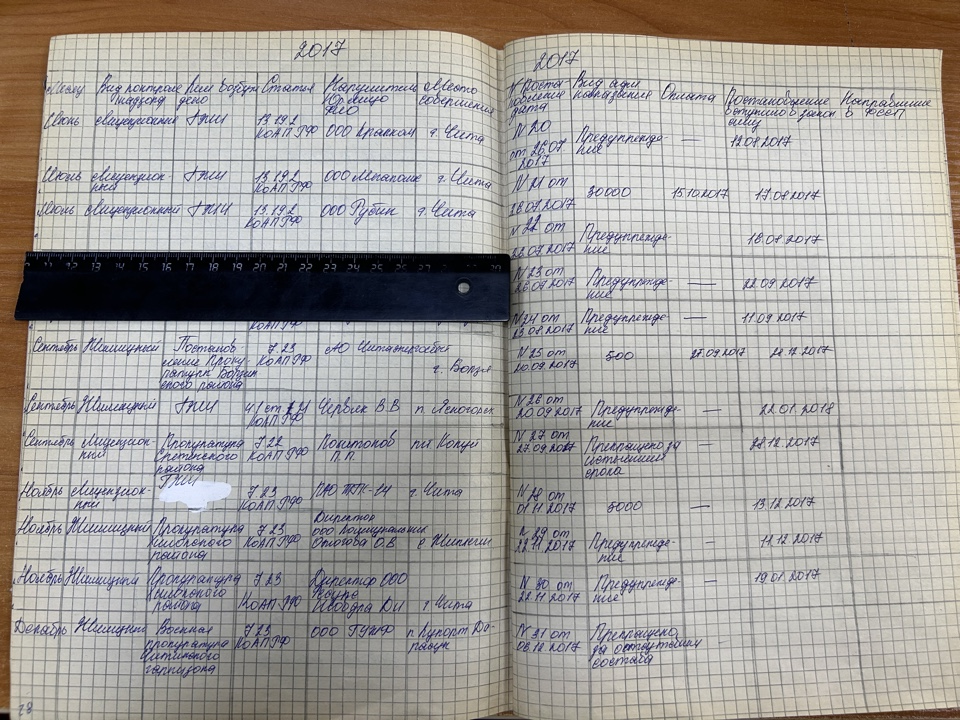 2017
Вид контроля
надзора
дело
Статья
Юр лицо
Место
совершения
Июнь лицензионный ГЖИ 13.19.2
КоАП РФ г. Чита
Июль Лицензион-
ный ГЖИ 13.19.2
КоАП РФ ООО г. Чита
Июль Лицензионный ГЖИ 13.19.2
КоАП РФ ООО Рубин г. Чита
11 12 13 14 15 16 17 18 19 20 21 22 23 24 25 26 27 28 29
КоАП РФ
Сентябрь Жилищный Постанов-
ление Проку-
ратуры Борзин
ского района
7.23
КоАП РФ
АО Читаэнергосбыт
г. Борзя
Сентябрь Жилищный ГЖИ
КоАП РФ
Червяк В.В п. Ясногорск
Сентябрь Лицензион-
ный
Прокуратура
Сретенского
района
7.22
КоАП РФ
П.П.
пгт Кокуй
ГЖИ
Ноябрь Лицензион-
ный
7.23
КоАП РФ
ПАО ТГК-14 г. Чита
Ноябрь Жилищный Прокуратура
Хилокского
района
7.23
КоАП РФ
Директор
ООО
О.В
Ноябрь Жилищный Прокуратура
Хилокского
района
7.23
КоАП РФ
Директор ООО
г Чита
Декабрь Жилищный Военная
прокуратура
Читинского
гарнизона
7.23
КоАП РФ
ООО ГУЖФ п. Курорт Да-
расун
28
2017
дата
Вид адм
наказания
Оплата
Постановление
вступило в закон
силу
Направление
в ФССП
N 20
от 26.07
2017
Предупрежде-
ние — 12.08.2017
N 21 от
28.07.2017
30000 15.10.2017 17.08.2017
N 22 от
Предупрежде-
ние 18.08.2017
N 23 от
Предупрежде-
ние — 22.09.2017
N 24 от
23.08.2017
Предупрежде-
ние — 11.09.2017
N 25 от
20.09.2017
500 27.09.2017
N 26 от
20.09.2017
Предупрежде-
ние — 22.01.2018
N 27 от
27.09.2017
Прекращено за
истечением
срока
— 28.12.2017
01.11.2017
— 13.12.2017
N 29 от
22.11.2017
Предупрежде-
ние —
N 30 от
22.11.2017
Предупрежде-
ние — 19.01.2017
N 31 от
06.12.2017
Прекращено
за отсутствием
состава